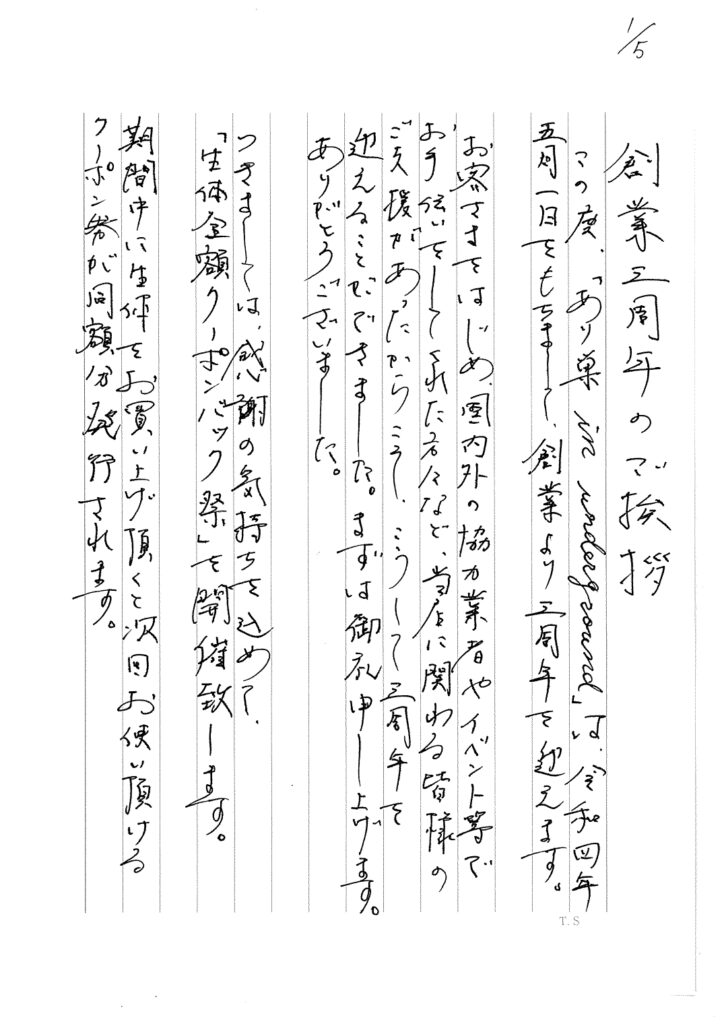 1/5
創業三周年のご挨拶
この度、「あり巣 in underground」は、令和四年
五月一日をもちまして、創業より三周年を迎えます。
お客さまをはじめ、国内外の協力業者やイベント等で
お手伝いをしてくれた方々など、当店に関わる皆様の
ご支援があったからこそ、こうして三周年を
迎えることができました。まずは御礼申し上げます。
ありがとうございました。
つきましては、感謝の気持ちを込めて、
「生体全額クーポンバック祭」を開催致します。
期間中に生体をお買い上げ頂くと次回お使い頂ける
クーポン券が同額分発行されます。
T.S